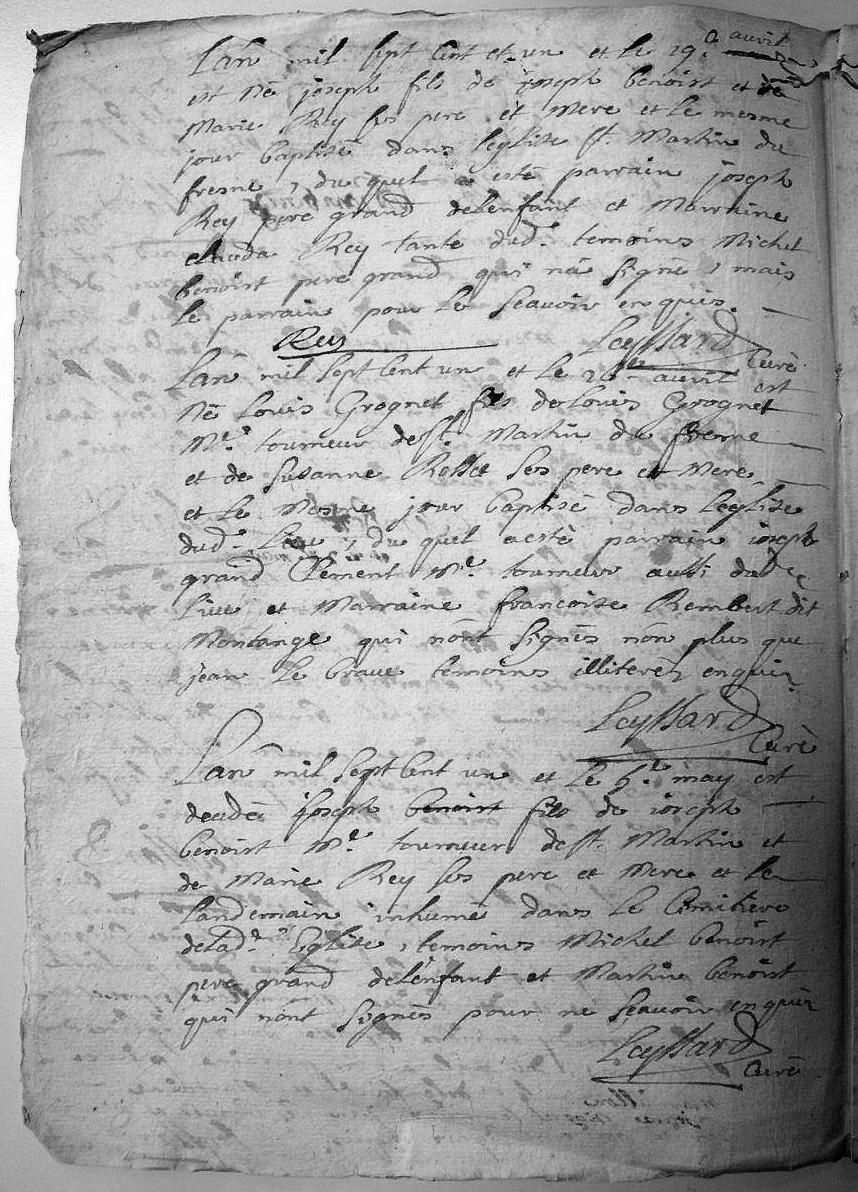 Lan mil sept cent et un et le 19e auvril
est né joseph fils de joseph benoist et de
Marie Rey ses pere et mere et le mesme
jour baptisé dans leglise st. Martin du
fresne, du quel a esté parrain joseph
Rey pere grand delenfant et Marraine
Rey tante dud. temoins Michel
benoist pere grand qui na signé, mais
le parrain pour le scavoir enquis.
Rey Leyssard Curé
Lan mil sept cent un et le auvril est
né Louis Grognet fils de Louis Grognet
Me. tourneur de st. Martin du fresne
et de Susanne Rosset ses pere et mere
et le mesme jour baptisé dans leglise
dud. Lieu, du quel a esté parrain joseph
grand Clement Me. tourneur aussi dud
Lieu et Marraine francoise Rembert dit
Montange qui nont signés non plus que
jean le brave temoins illiterés enquis
Leyssard Curé
Lan mil sept cent un et le 6e. may est
decedé joseph benoist fils de joseph
benoist Me. tourneur de st. Martin et
de Marie Rey ses pere et mere et le
landemain inhumé dans le Cimitiere
delad. Eglise, temoins Michel benoist
pere grand delenfant et Martin benoist
qui nont signés pour ne scavoir enquis
Leyssard
Curé